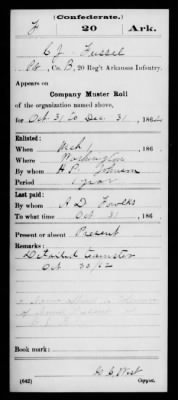 (Confederate.)
F 20 Ark.
C J Fussel
Pvt, Co. B, 20 Reg't Arkansas Infantry.
Appears on
Company Muster Roll
of the organization named above,
for Oct 31 to Dec 31, 186
Enlisted:
When Mch, 186
Where Washington
By whom H. P. Johnson
Period 1 year
Last paid:
By whom A D Fowlks
To what time Oct 31, 186
Present or absent Present
Remarks:
Detailed teamster
Oct 30/62
Book mark:
(642) Copyist.